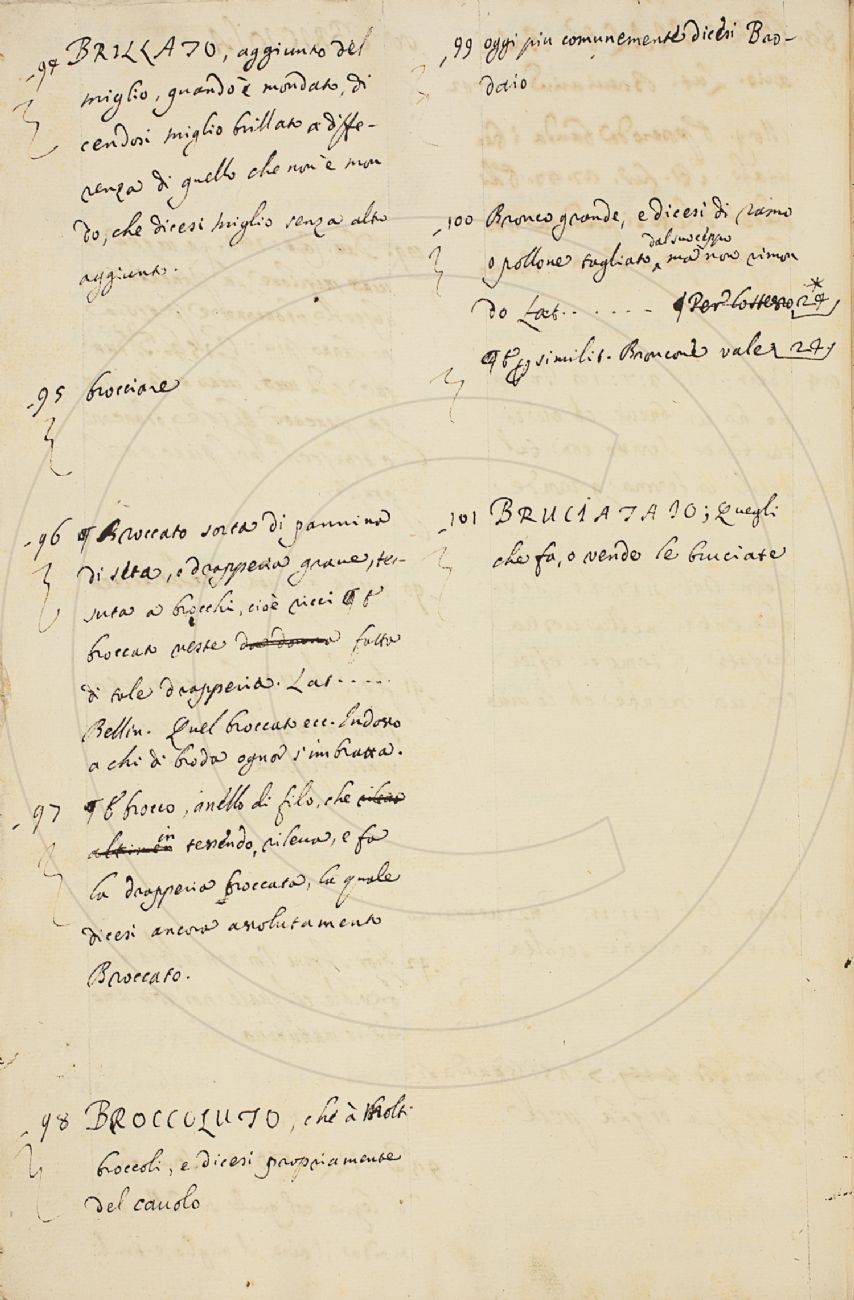 94 BRILLATO, aggiunto del
miglio, quando è mondato, di
cendosi miglio brillato a diffe-
renza di quello che non è mon
do, che dicesi miglio senza altro
aggiunto.
95 brocciare
96 ¶ Broccato sorta di pannina
di seta, o drapperia graue, tes-
suta a brocchi, cioè ricci ¶ E
broccato veste da donna fatta
di tale drapperia. Lat.....
Bellin. Quel broccato ecc. Indosso
a chi di broda ognor s'imbratta.
97 ¶ E brocco, anello di filo, che rileva
in
tessendo, rileua, e fa
la drapperia broccata, la quale
dicesi ancora assolutamente
Broccato.
98 BROCCOLUTO, che à molti
broccoli, e dicesi propriamente
del cauolo
99 oggi piu comunemente dicesi Bro-
daio
100 Bronco grande, e dicesi di ramo
dal suo ceppo
o pollone tagliato ma non rimon
do Lat....... ¶ Per lo stesso, 24
¶ E similit. Broncone vale 24
101 BRUCIATAIO; Quegli
che fa, o vende le bruciate